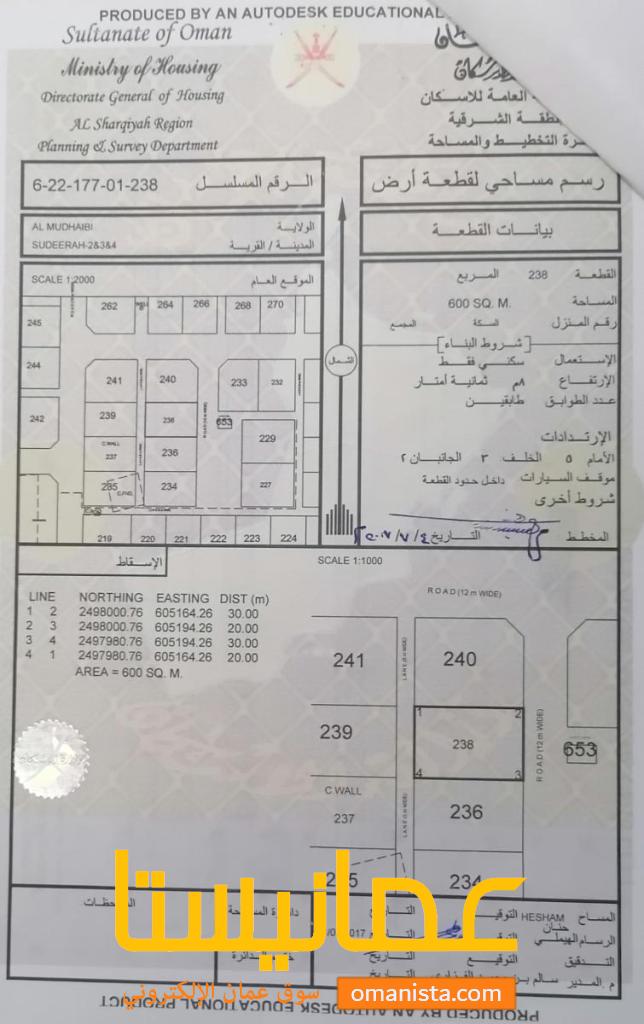 PRODUCED BY AN AUTODESK EDUCATIONAL
Sultanate of Oman
Ministry of Housing
Directorate General of Housing
AL Sharqiyah Region
Planning & Survey Department
العامة للاسكان
الشرقية
التخطيط والمساحة
6-22-177-01-238 الرقم المسلسل
رسم مساحي لقطعة أرض
AL MUDHAIBI الولاية
SUDEERAH-2&3&4 المدينة / القرية
بيانات القطعة
SCALE 1:2000 الموقع العام
262 264 266 268 270
245
244
242
241 240 233 232
239 238 653
C.WALL
237 236 229
235 234 227
219 220 221 222 223 224
ROAD (12 m WIDE)
الشمال
القطعة 238 المربع
المساحة 600 SQ. M.
رقم المنزل السكة المجمع
[شروط البناء]
الإستعمال سكني فقط
الإرتفاع ٨م ثمانية أمتار
عدد الطوابق طابقين
الإرتدادات
الأمام ٥ الخلف ٣ الجانبان ٢
موقف السيارات داخل حدود القطعة
شروط أخرى
المخطط التاريخ
الإسقاط
SCALE 1:1000
LINE NORTHING EASTING DIST (m)
1 2 2498000.76 605164.26 30.00
2 3 2498000.76 605194.26 20.00
3 4 2497980.76 605194.26 30.00
4 1 2497980.76 605164.26 20.00
AREA = 600 SQ. M.
ROAD (12 m WIDE)
241 240
LANE (6 m WIDE)
239 1 2
238 653
4 3
ROAD (12 m WIDE)
C.WALL
237 236
LANE (6 m WIDE)
235 234
عمانيستا
المساح HESHAM التوقيع التاريخ
الرسام الهيملي حنان التاريخ
التدقيق التوقيع التاريخ
م.المدير سالم
سوق عمان الالكتروني
omanista.com
PRODUCED BY AN AUTODESK EDUCATIONAL PRODUCT